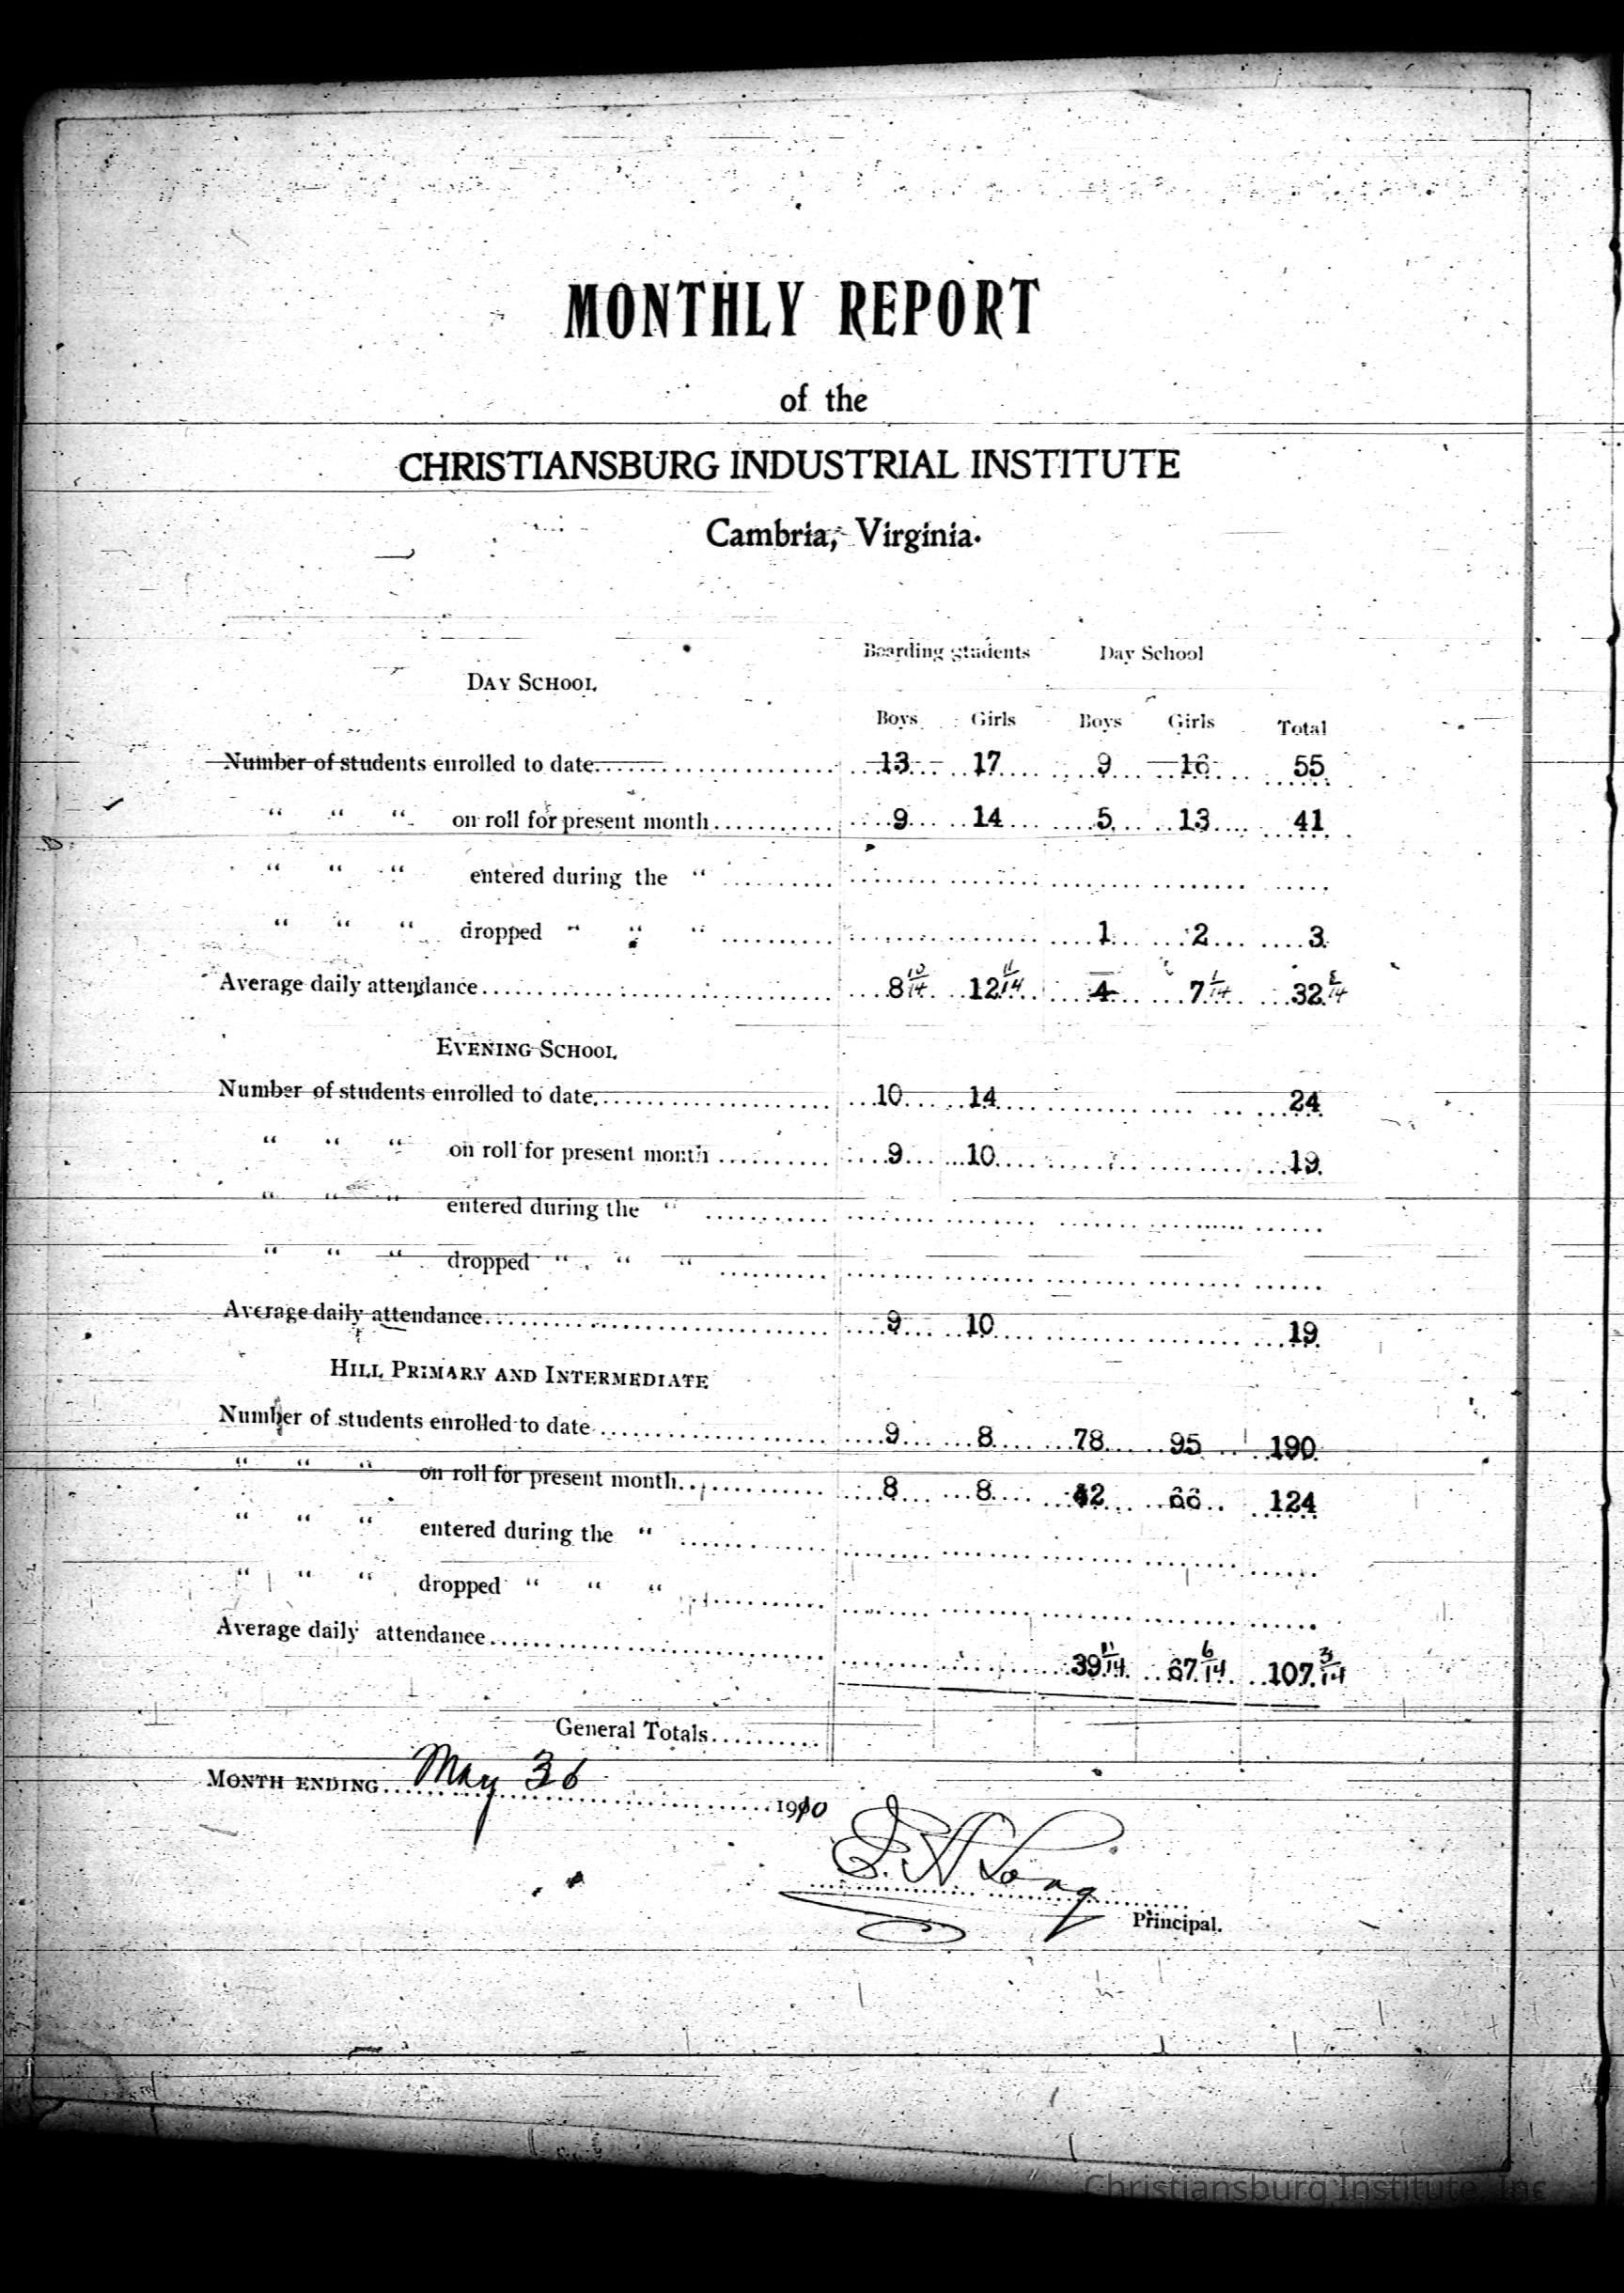 MONTHLY REPORT
of the
CHRISTIANSBURG INDUSTRIAL INSTITUTE
Cambria, Virginia.
Boarding students Day School
DAY SCHOOL
Boys Girls Boys Girls Total
Number of students enrolled to date 13 17 9 16 55
“ “ “ on roll for present month 9 14 5 13 41
“ “ “ entered during the “
“ “ “ dropped “ “ “ 1 2 3
Average daily attendance 8 10/14 12 11/14 4 7 1/14 32 8/14
EVENING SCHOOL
Number of students enrolled to date 10 14 24
“ “ “ on roll for present month 9 10 19
“ “ “ entered during the “
“ “ “ dropped “ “ “
Average daily attendance 9 10 19
HILL PRIMARY AND INTERMEDIATE
Number of students enrolled to date 9 8 78 95 190
“ “ “ on roll for present month 8 8 42 66 124
“ “ “ entered during the “
“ “ “ dropped “ “ “
Average daily attendance 39 11/14 67 6/14 107 3/14
General Totals
MONTH ENDING May 36 1910
E. A. Long
Principal.
Christiansburg Institute, Inc